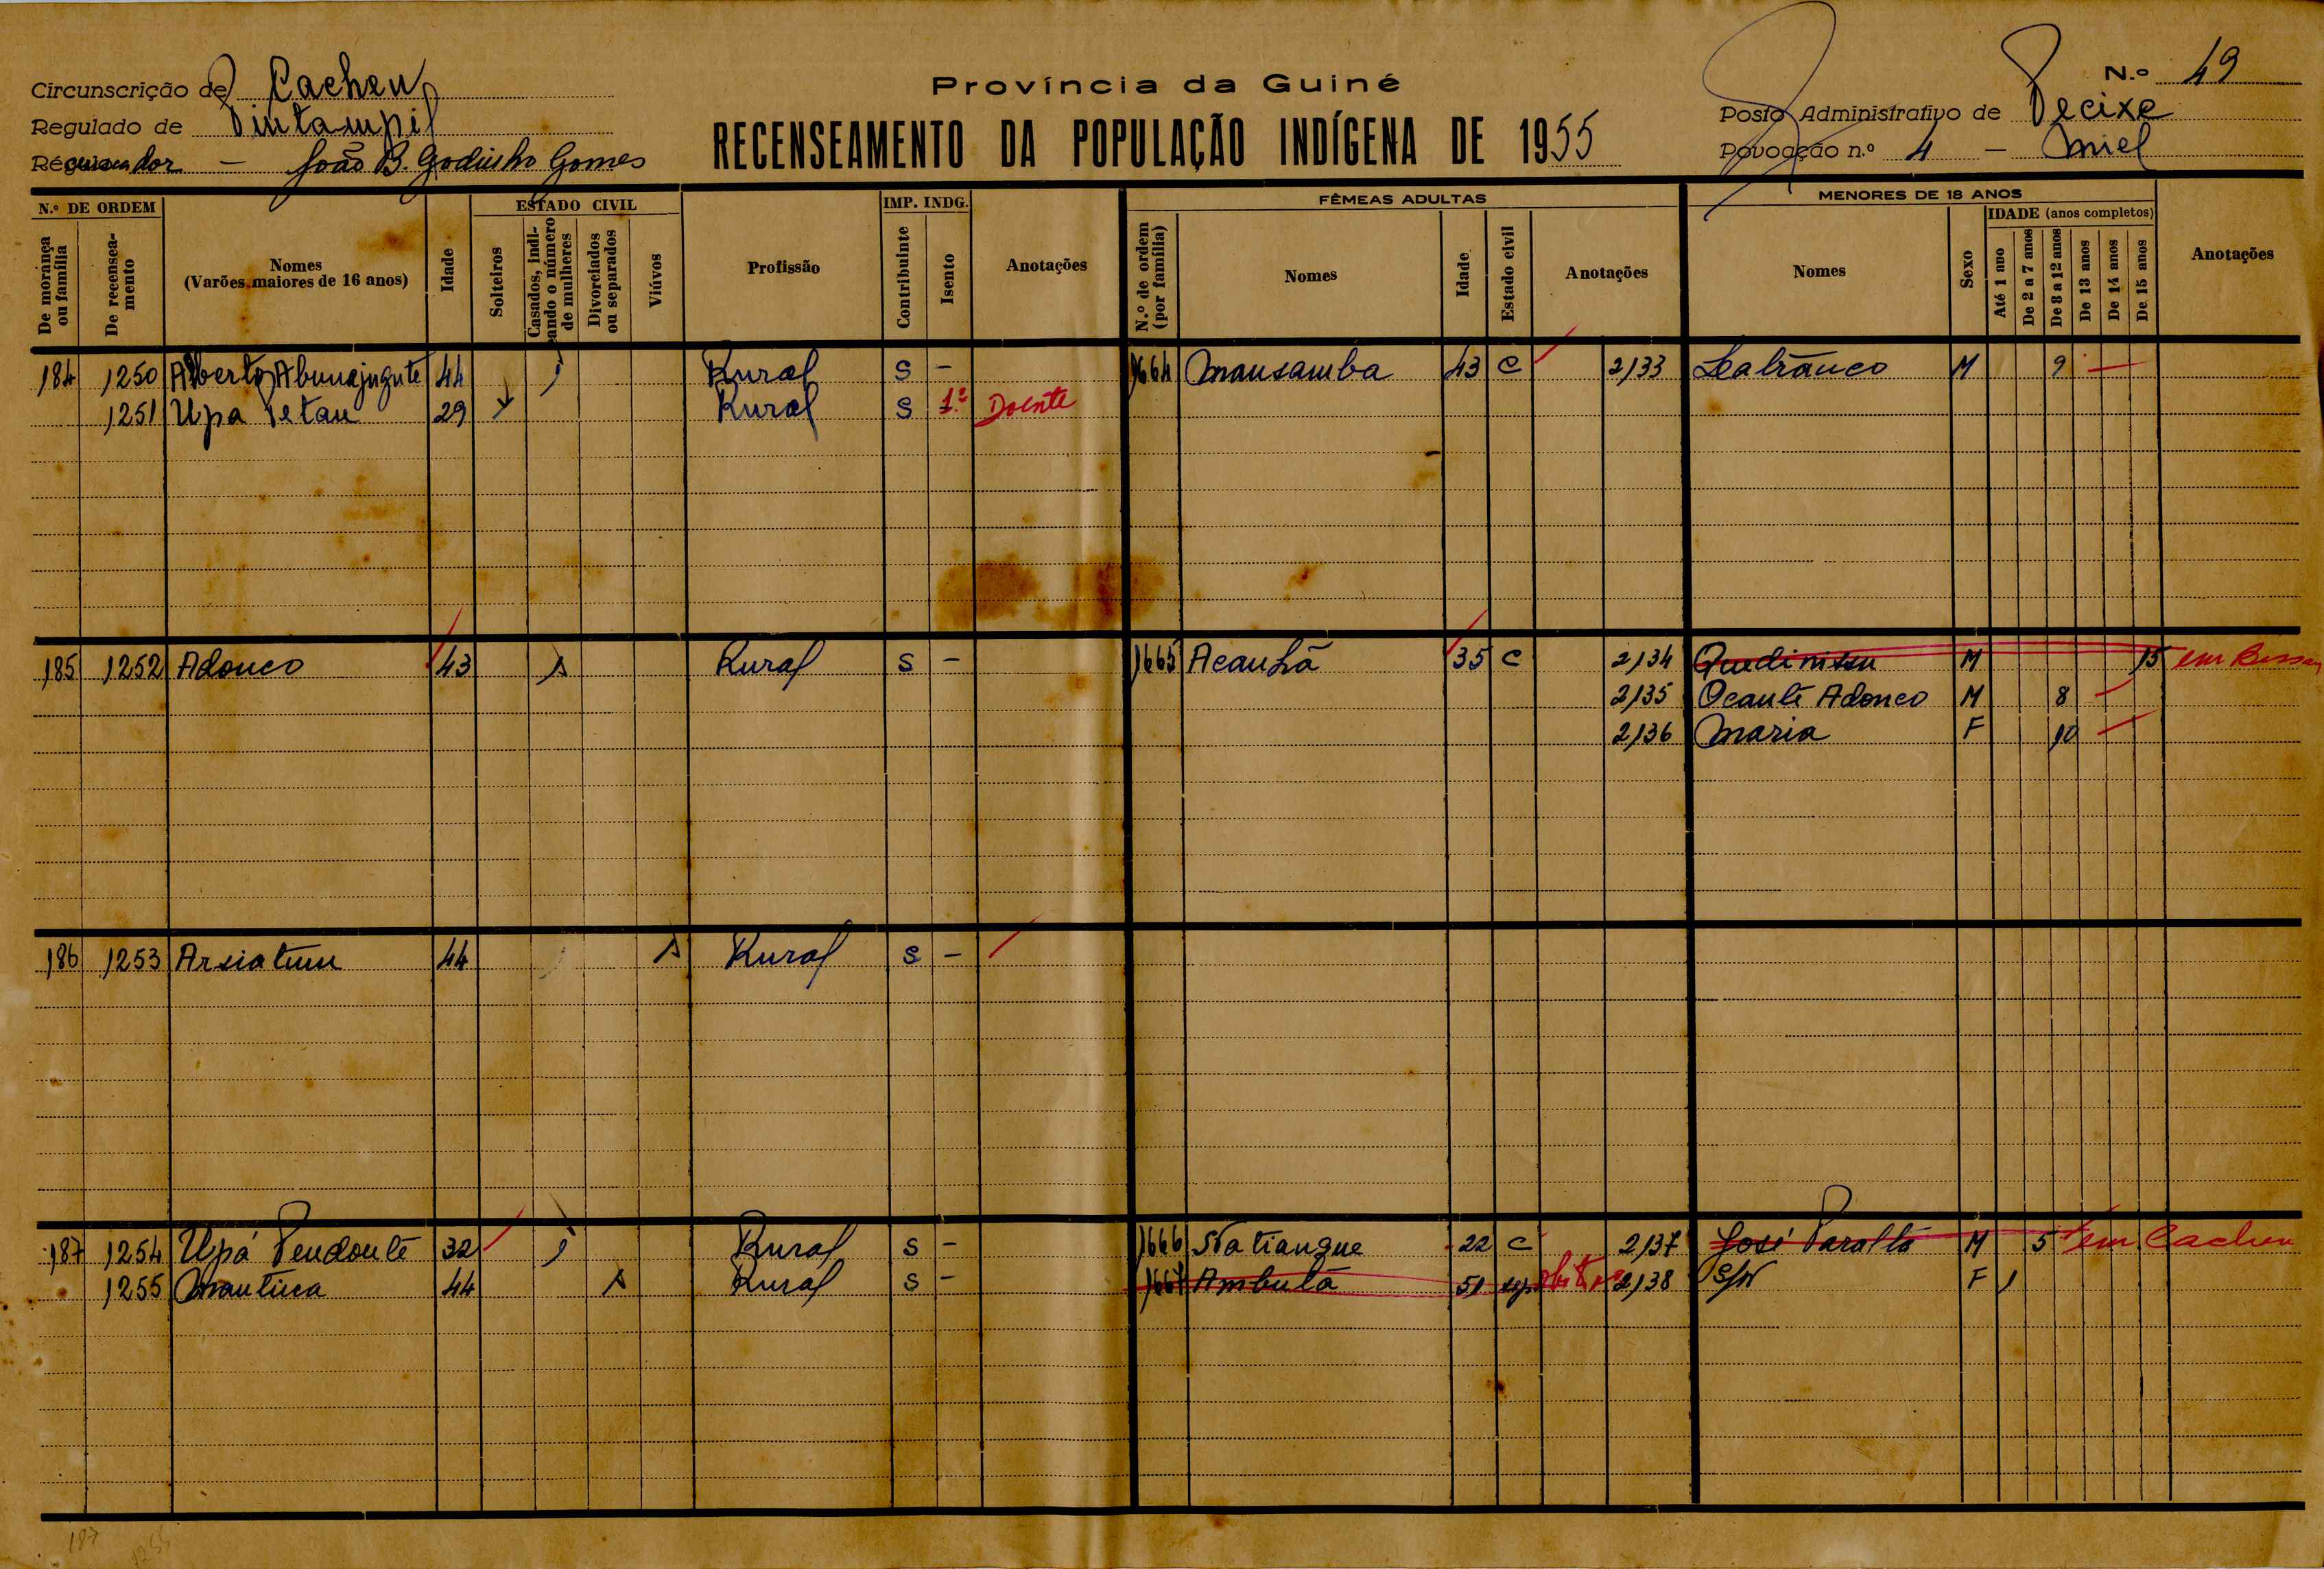 Província da Guiné
RECENSEAMENTO DA POPULAÇÃO INDÍGENA DE 1955
Circunscrição de Cacheu
Regulado de Pintampil
Recenseador - João B. Godinho Gomes
N.º 49
Posto Administrativo de Pecixe
Povoação n.º 4 - Oniel
N.º DE ORDEM
De morança ou família
De recenseamento
Nomes
(Varões maiores de 16 anos)
Idade
ESTADO CIVIL
Solteiros
Casados, indicando o número de mulheres
Divorciados ou separados
Viúvos
Profissão
IMP. INDG.
Contribuinte
Isento
Anotações
FÊMEAS ADULTAS
N.º de ordem (por família)
Nomes
Idade
Estado civil
Anotações
MENORES DE 18 ANOS
Nomes
Sexo
IDADE (anos completos)
Até 1 ano
De 2 a 7 anos
De 8 a 12 anos
De 13 anos
De 14 anos
De 15 anos
Anotações
184 1250 Alberto Abunajugute 44 1 Rural S - 1664 Mansamba 43 C 2133 Labranco M 9 -
1251 Upa Petau 29 Rural S 1.º Doente
185 1252 Adonco 43 1 Rural S - 1665 Acanhã 35 C 2134 Quedinissu M 15 em Bissau
2135 Ocante Adonco M 8
2136 Maria F 10
186 1253 Arsiatum 44 1 Rural S -
187 1254 Upá Pendonte 32 1 Rural S - 1666 Natiangue 22 C 2137 José Paralta M 5 em Cacheu
1255 Mantuca 44 1 Rural S - 1667 Ambulã 51 sep. 2138 S/N F 1
187
1255